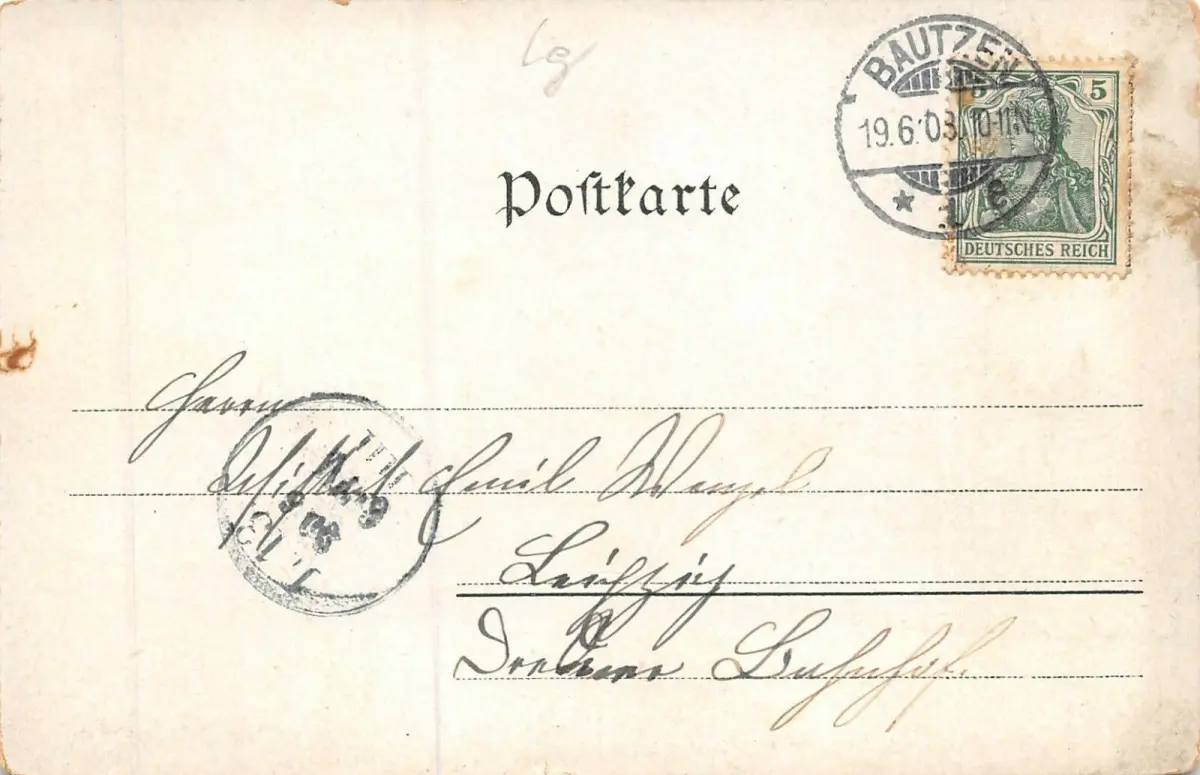 lg
BAUTZEN
19.6.03. 10-11N.
* 1. e
5 5
DEUTSCHES REICH
Postkarte
Herrn
Emil Wenzel
Leipzig
Dresdner Bahnhof.